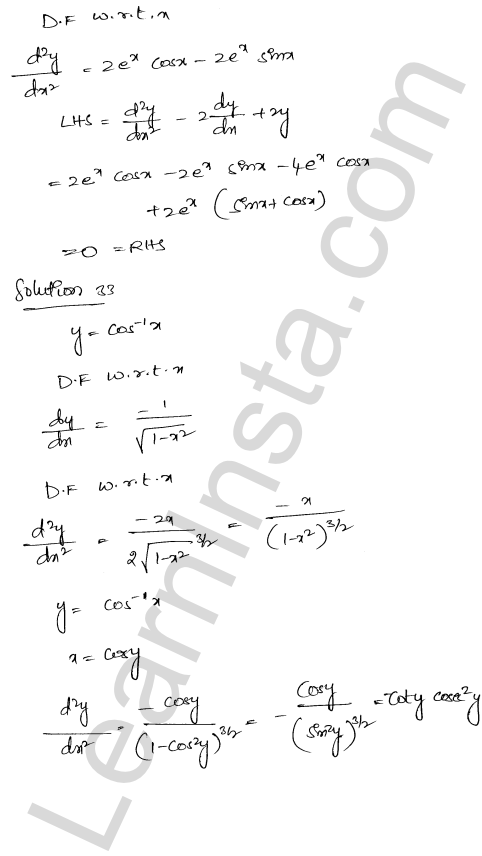 D.F w.r.t.x
d²y/dx² = 2eˣ cosx - 2eˣ sinx
LHS = d²y/dx² - 2 dy/dx + 2y
= 2eˣ cosx - 2eˣ sinx - 4eˣ cosx
+ 2eˣ (sinx + cosx)
= 0 = RHS
Solution 33
y = cos⁻¹x
D.F w.r.t.x
dy/dx = -1/√(1-x²)
D.F w.r.t.x
d²y/dx² = -2x/2√(1-x²)^3/2 = -x/(1-x²)^3/2
y = cos⁻¹x
x = cosy
d²y/dx² = -cosy/(1-cos²y)^3/2 = -cosy/(sin²y)^3/2 = -coty cosec²y
LearnInsta.com